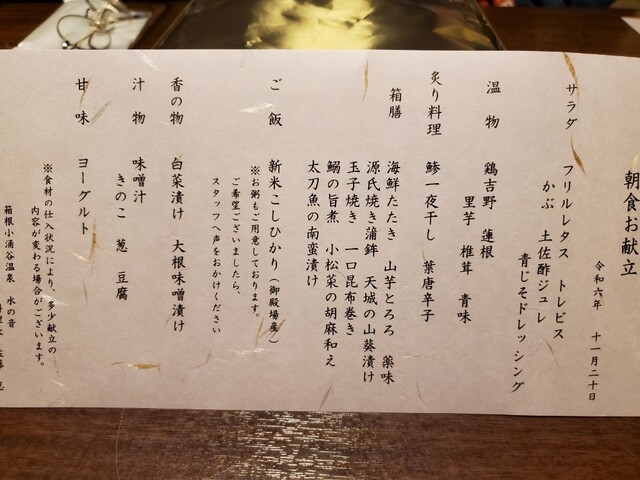 朝食お献立
令和六年 十一月二十日
サラダ フリルレタス トレビス
かぶ 土佐酢ジュレ
青じそドレッシング
温物 鶏吉野 蓮根
里芋 椎茸 青味
炙り料理 鯵一夜干し 葉唐辛子
箱膳 海鮮たたき 山芋とろろ 薬味
源氏焼き蒲鉾 天城の山葵漬け
玉子焼き 一口昆布巻き
鰯の旨煮 小松菜の胡麻和え
太刀魚の南蛮漬け
ご飯 新米こしひかり(御殿場産)
※お粥もご用意しております。
ご希望ございましたら、
スタッフへ声をおかけください
香の物 白菜漬け 大根味噌漬け
汁物 味噌汁
きのこ 葱 豆腐
甘味 ヨーグルト
※食材の仕入状況により、多少献立の
内容が変わる場合がございます。
箱根小涌谷温泉 水の音